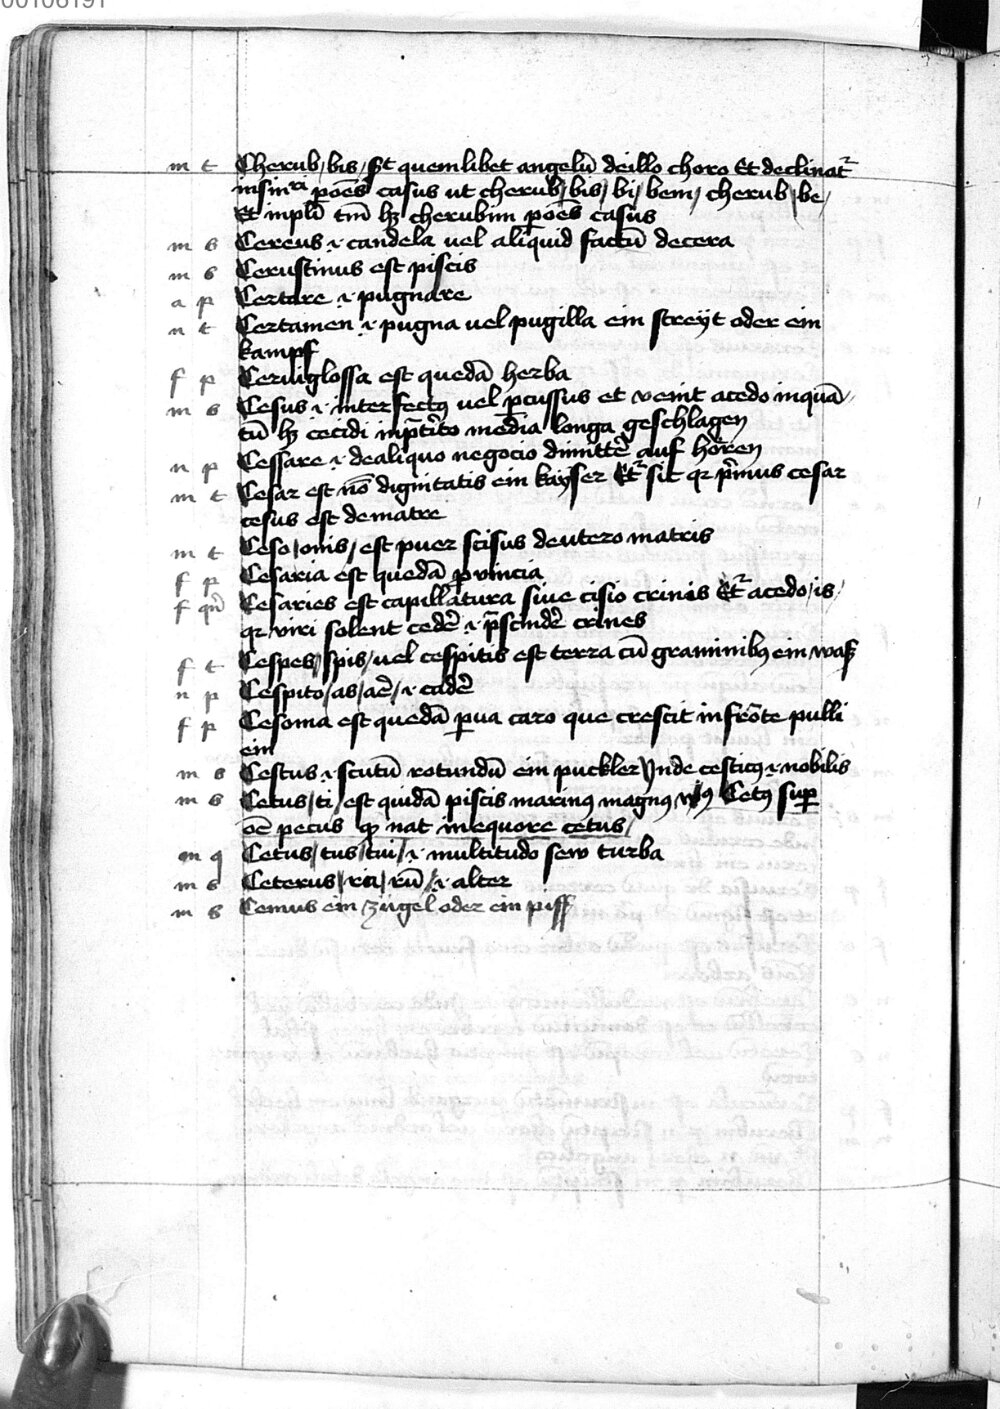 00106191
m t Cherub / bis / s̄t quemlibet angelū deillo choro Et declinat᷑
insinri p̱oēs casus ut cherub / bis / bi / bem / cherub / be /
Et inpl̄i tm̄ hꝫ cherubim p̱ oēs casus
m s Cereus .i. candela uel aliquid factū decera
m s Cerustinus est piscis
a p Certare .i. pugnare
n t Certamen .i. pugna uel pugilla ein streyt oder ein
kampf
f p Ceruiglossa est quedā herba
m s Cesus .i. interfectꝰ uel p̱cussus et venit acedo inquā
tū hꝫ cecidi inp̄tito media longa geschlagen
n p Cessare .i. dealiquo negocio dimitte᷑ auf horen
m t Cesar est nō dignitatis ein kayser Et᷑ sic qꝛ pͥmus cesar
cesus est dematre
m t Ceso / onis / est puer scisus deutero matris
f p Cesaria est quedā ꝓvincia
f qn̄ Cesaries est capillatura siue cisio crinis Et᷑ acedo / is /
qꝛ viri solent cede᷑ .i. p̄scinde᷑ crines
f t Cespes / spis / uel cespitis est terra cū graminibꝫ ein waß
n p Cespito / as / ae᷑ / .i. cade᷑
f p Cesoma est quedā p̱ua caro que crescit infrōte pulli
ein
m s Cestus .i. scutū rotundū ein puckler Inde cesticꝰ .i. nobilis
m s Cetus / ti / est quidā piscis marinꝰ magnꝰ Cetꝰ sup̱
oē pecus qꝫ nat inequore cetus /
m q Cetus / tus / tui / .i. multitudo sew turba
m s Ceterus / ra / rū / .i. alter
m s Cemus ein zúgel oder ein piss